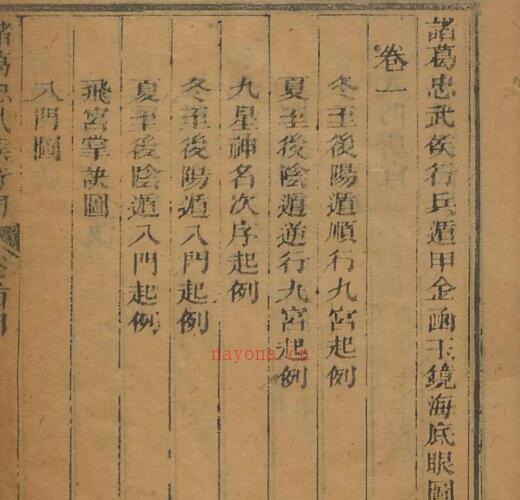 諸葛忠武侯行兵遁甲金函玉鏡海底眼圖
卷一
冬至後陽遁順行九宮起例
夏至後陰遁逆行九宮起例
九星神名次序起例
冬至後陽遁八門起例
夏至後陰遁八門起例
飛宮掌訣圖
八門圖
諸葛忠武侯奇門
nayona.cn